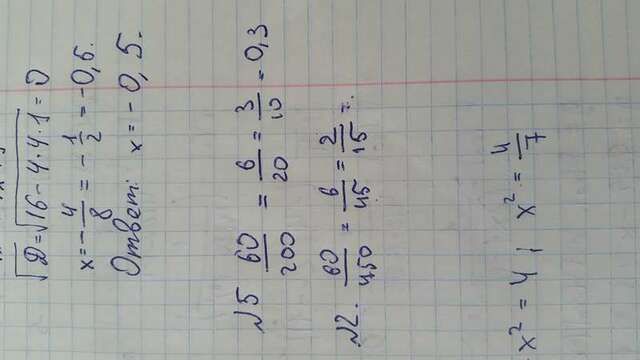 √D = √16 - 4·4·1 = 0
x = - 4/8 = - 1/2 = -0,5.
Ответ: x = -0,5.
№5 60/200 = 6/20 = 3/10 = 0,3
№2. 60/450 = 6/45 = 2/15 =.
x² = 4 ; x² = 4/7